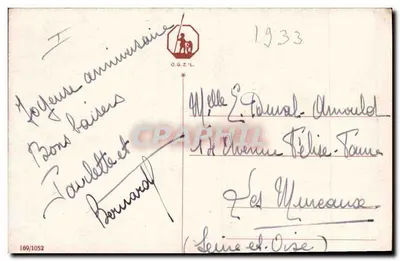 I
Joyeuse anniversaire
Bons baisers
Paulette et
Bernard
1933
Mlle E. Duval-Arnould
Avenue Félix-Faure
Les Mureaux
(Seine-et-Oise)
169/1052
CPARAMA